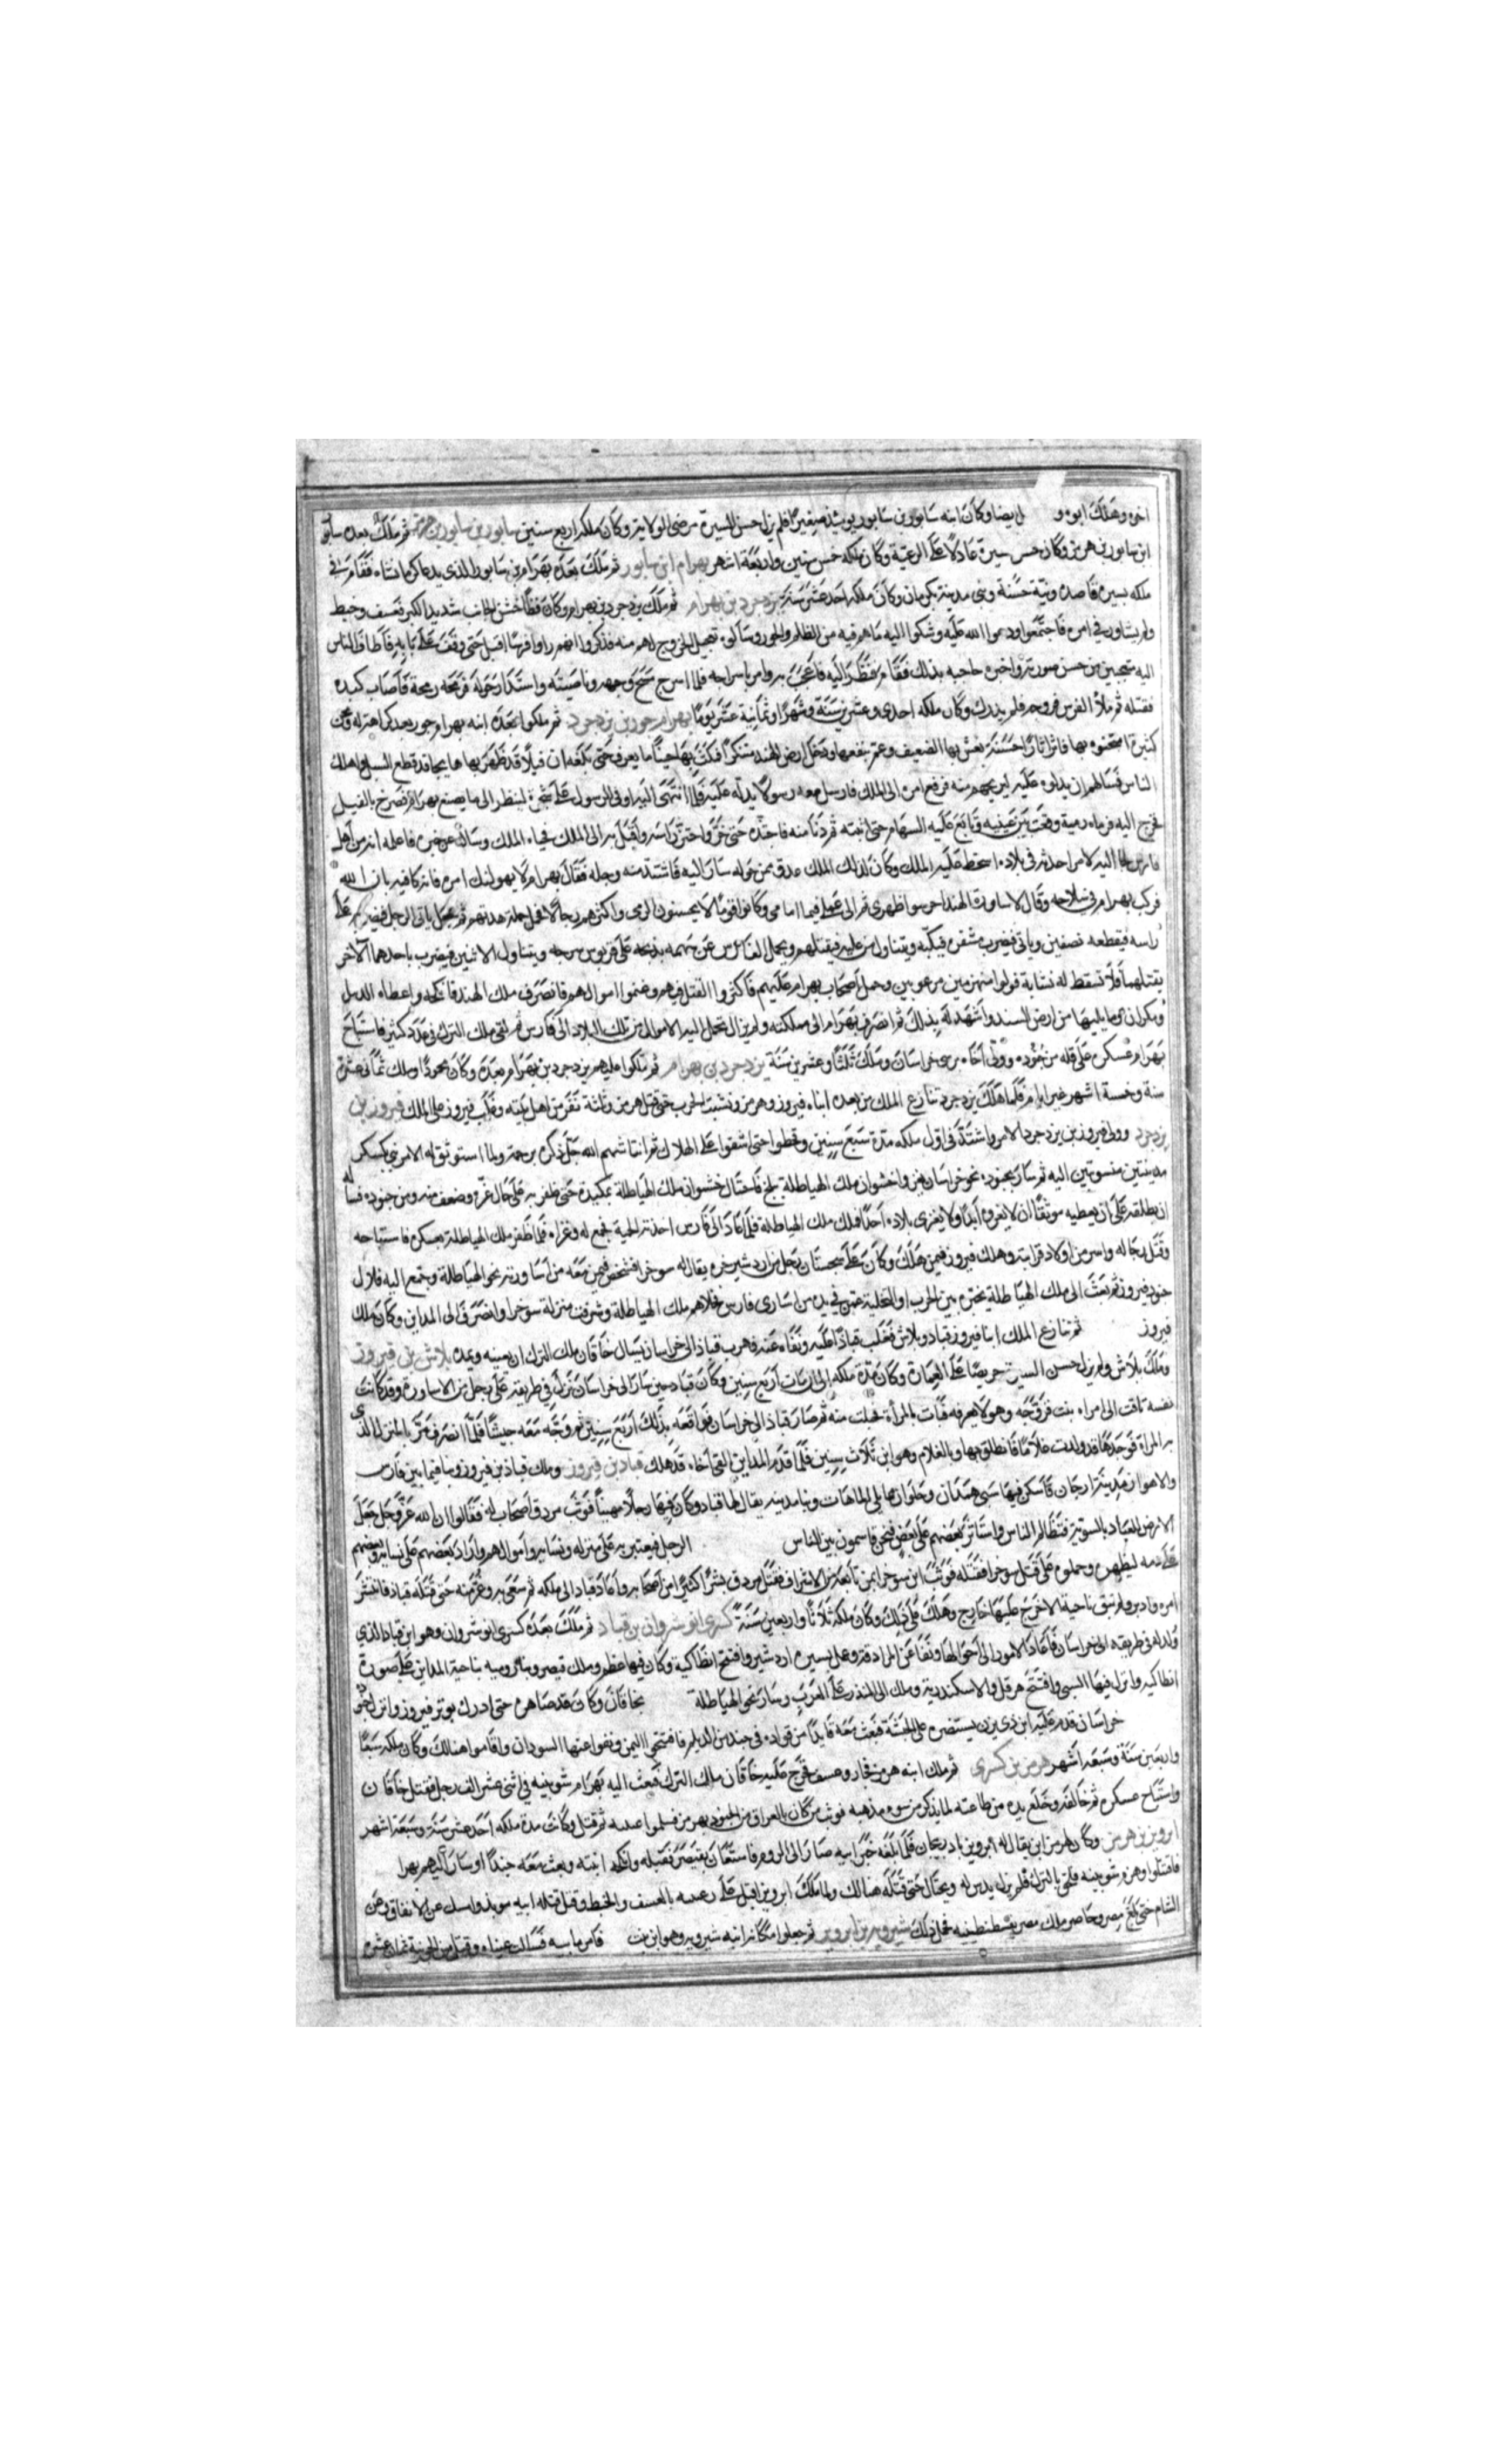 اخوه وهلك ابوه و ل ايضا وكان ابنه سابور بن سابور يومئذ صغيرًا فلم يزل حسن السيرة مرضى الولاية وكان ملكه اربع سنين سابور بن سابور بن هرمز ثم ملك بعده سابور
ابن سابور بن هرمز وكان حسن سيرة عادلًا على الرعية وكان ملكه خمس سنين واربعة اشهر بهرام ابن سابور ثم ملك بعده بهرام بن سابور الذى يدعا كرمانشاه فقام فى
ملكه بسيرة قاصدة ونية حسنة وبنى مدينة بكرمان وكان ملكه احد عشر سنة يزدجرد بن بهرام ثم ملك يزدجرد بن بهرام وكان فظًا خشن الجانب شديد الكبر فعسف وخبط
ولم يشاور فى امره فاجتمعوا ودعوا الله عليه وشكوا اليه ما هم فيه من الظلم والجور وسألوه تعجيل الفرج لهم منه فذكروا انهم راوا فرسًا اقبل حتى وقف على بابه فاطاف الناس
اليه متعجبين من حسن صورته واخبره حاجبه بذلك فقام فنظر اليه فاعجب به وامر باسراجه فلما اسرج مسح وجهه وناصيته واستدار حوله فرمحه رمحة فاصاب كبده
فقتله ثم ملأ الفرس فروجه فلم يدرك وكان ملكه احدى وعشرين سنة وشهرًا وثمانية عشر يومًا بهرام جور بن يزدجرد ثم ملكوا بعده ابنه بهرام جور بعد
كثيرة امتحنوه بها فاثر اثارًا حسنة نعش بها الضعيف وعم نفعها ودخل ارض الهند متنكرًا فمكث بها حينًا ما يعرف حتى بلغه ان فيلًا قد ظهر بها هايجا قد قطع السبل واهلك
الناس فسألهم ان يدلوه عليه ليريحهم منه فرفع امره الى الملك فارسل معه رسولًا يدله عليه فلما انتهى اليه اوفى الرسول على شجرة لينظر الى ما يصنع بهرام فصرخ بالفيل
فخرج اليه فرماه رمية وقعت بين عينيه وتابع عليه السهام حتى اثبته ثم دنا منه فاجتذه حتى خر واحتز راسه واقبل به الى الملك فحباه الملك وساله عن خبره فاعلمه انه من اهل
فارس لجأ اليه لامر احدثه فى بلاده اسخط عليه الملك وكان لذلك الملك عدو ممن حوله سار اليه فاشتد منه وجله فقال بهرام لا يهولنك امره فانى كافيه باذن الله
فركب بهرام فى سلاحه وقال لاساورة الهند احرسوا ظهرى ثم انظروا الى عملى فيما امامى وكانوا قومًا لا يحسنون الرمى واكثرهم رجالًا فحمل حملة هدتهم ثم جعل ياتى الرجل فيضربه على
راسه فيقطعه نصفين وياتى فيضرب مشفره فيكبه ويتناول من عليه فيقتلهم ويحمل الفارس عن فيذبحه على قربوس سرجه ويتناول الاثنين فيضرب باحدهما الآخر
يقتلهما فلا تسقط له نشابة فولوا منهزمين مرعوبين وحمل اصحاب بهرام عليهم فاكثروا القتل فيهم وغنموا اموالهم فانصرف ملك الهند فانكحه واعطاه الديبل
ومكران وما يليها من ارض السند واشهد له بذلك ثم انصرف بهرام الى مملكته ولم يزال تحمل اليه الاموال من تلك البلاد الى فارس ثم التقى ملك الترك فى عدد كثير فاستباح
بهرام عسكره على قلة من جنوده وولى اخاه نرسى خراسان وملك ثلثًا وعشرين سنة يزدجرد بن بهرام ثم ملكوا عليهم يزدجرد بن بهرام بعده وكان محمودًا وملك ثمانى عشرة
سنة وخمسة اشهر غير ايام فلما هلك يزدجرد تنازع الملك من بعده ابناه فيروز وهرمز ونشبت الحرب حتى قتل هرمز وثلثة نفر من اهل بيته وغلب فيروز على الملك فيروز بن
يزدجرد وولى فيروز بن يزدجرد الامر واشتد فى اول ملكه مدة سبع سنين وقحطوا حتى اشفوا على الهلاك ثم انتاشهم الله جل ذكره برحمته ولما استوثق له الامر بنى بكسكر
مدينتين منسوبتين اليه ثم سار بجنوده نحو خراسان يغزو اخشوان ملك الهياطلة ببلخ فاحتال اخشوان ملك الهياطلة بمكيدة حتى ظفر به على حال غرة وضعف منه ومن جنوده فساله
ان يطلقه على ان يعطيه موثقًا ان لا يغزوه ابدًا ولا يغزى بلاده احدًا ملك الهياطلة فلما عاد الى فارس اخذته الحمية فجمع له وغزاه فما ظفر ملك الهياطلة بعسكره فاستباحه
وقتل رجاله واسر من اولاده قرابته وهلك فيروز فيمن هلك وكان على سجستان رجل من اردشير خره يقال له سوخرا فشخص فيمن معه من اساورته نحو الهياطلة وجمع اليه فلال
جنود فيروز ثم بعث الى ملك الهياطلة يخيره بين الحرب او التخلية عمن فى يده من اسارى فارس فخلاهم ملك الهياطلة وشرفت منزلة سوخرا وانصرف الى المداين وكان ملك
فيروز ثم تنازع الملك ابنا فيروز قباد وبلاش فغلب قباذًا عليه ونفاه عنه فهرب قباذ الى خراسان يسال خاقان ملك الترك ان يعينه ويمده بلاش بن فيروز
وملك بلاش ولم يزل حسن السيرة حريصًا على العمارة وكان مدة ملكه الى ان مات اربع سنين وكان قباد حين سار الى خراسان نزل فى طريقه على رجل من الاساورة وقد كانت
نفسه تاقت الى امراة بنت فزوجه وهو لا يعرفه فبات بالمرأة فحبلت منه ثم صار قباذ الى خراسان فواقعه بذلك اربع سنين ثم وجه معه جيشًا فلما انصرف مر بالمنزل الذى
به المراة فوجدها قد ولدت غلامًا فانطلق بها وبالغلام وهو ابن ثلاث سنين فلما قدم المداين الفى اخاه قد هلك قباد بن فيروز وملك قباذ بن فيروز وبنا فيما بين فارس
والاهواز مدينة ارجان فاسكن فيها سبى همذان وحلوان مما يلى الماهات وبنا مدينة يقال لها قباد وكان فيها رجلًا مهينًا فوثب مزدق اصحاب له فقالوا ان الله عز وجل جعل
الارض للعباد بالسوية فتظالم الناس واستاثر بعضهم على بعض فنحن قاسمون بين الناس الرجل فيعتبر به على منزله ونسايه وامواله وازاد بعضهم على نسا وبعضهم
على دمه ليطهره وحملوه على قتل سوخرا فقتله فوثب ابن سوخرا بمن تابعه من الاشراف فقتل مزدق بشرًا كثيرًا من اصحابه واعاد قباد الى ملكه ثم سعى به وغر منه حتى قتله قباد فانتشر
امره وادبر ولم تبق ناحية الا خرج عليها خارج وهلك على ذلك وكان ملكه ثلاثًا واربعين سنة كسرى انوشروان بن قباد ثم ملك بعده كسرى انوشروان وهو ابن قباد الذى
ولد له فى طريقه الى خراسان فاعاد الامور الى احوالها ونفا عن المزادقة وعمل بسيرة اردشير وافتتح انطاكية وكان فيها عظم وملك قيصر وبنا رومية بناحية المداين على صورة
انطاكية وانزل فيها السبى وافتتح هرقل والاسكندرية وملك الى المنذر على العرب وسار نحو الهياطلة بخاقان وكان قد صاهره حتى ادرك بوتر فيروز وانزل جنوده
خراسان قدم عليه ابن ذى يزن يستنصره على الحبشة فبعث معه قايدًا من قواده فى جند من الديلم فافتتحوا اليمن ونفوا عنها السودان واقاموا هنالك وكان ملكه سبعًا
واربعين سنة وسبعة اشهر هرمز بن كسرى ثم ملك ابنه هرمز فجار وعسف فخرج عليه خاقان ملك الترك فبعث اليه بهرام شوبينه فى اثنى عشر الف رجل فقتل خاقان
واستباح عسكره ثم خالفه وخلع يده من طاعته لما يذكر من سوء مذهبه فوثب من كان بالعراق من الجنود بهرمز فسملوا عينيه ثم قتل وكانت مدة ملكه احد عشر سنة وسبعة اشهر
ابرويز بن هرمز وكان لهرمز ابن يقال له ابرويز باذربيجان فلما بلغه خبر ابيه صار الى الروم فاستغان بقيصر فقبله وانكحه ابنته وبعث معه جندًا وسار اليهم بهرام
فاقتتلوا وهزم شوبينه فلحق بالترك فلم يزل يدس له ويحتال حتى قتله هنالك ولما ملك ابرويز اقبل على رعيته بالعسف والخبط وقتل قتلة ابيه
الشام حتى بلغ مصر وحاصر ملك مصر بقسطنطينيه ذلك شيرويه بن ابرويز ثم جعلوا مكانه ابنه شيرويه وهو ابن بنت فامر بابيه فسملت عيناه وقتل